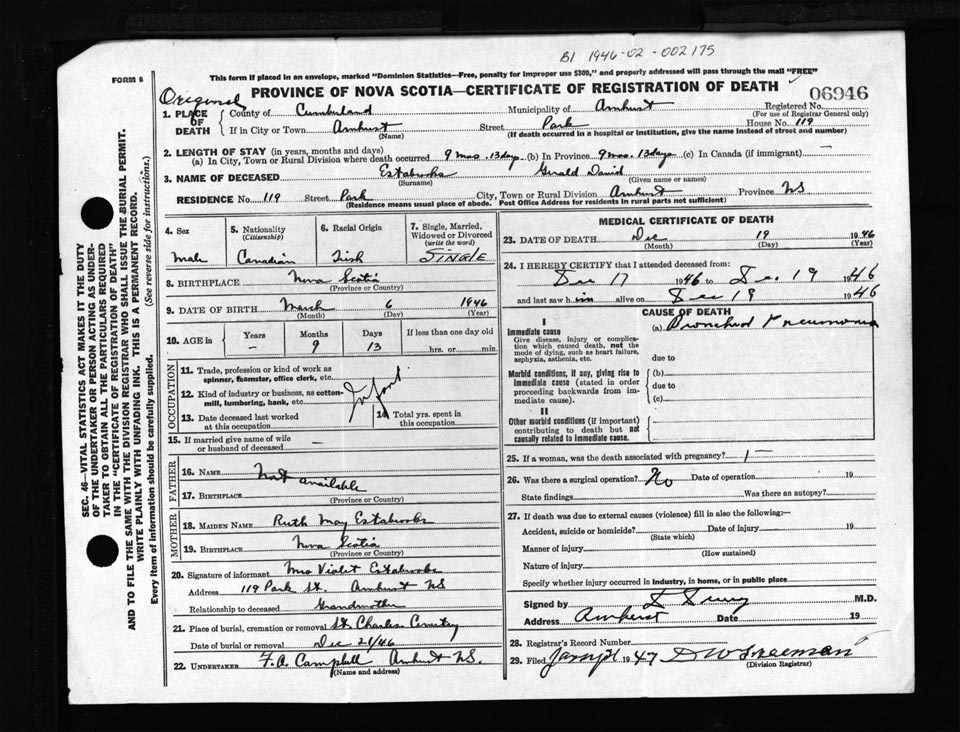 B1 1946-02-002175
This form if placed in an envelope, marked "Dominion Statistics—Free, penalty for improper use $300," and properly addressed will pass through the mail "FREE"
FORM 6
PROVINCE OF NOVA SCOTIA—CERTIFICATE OF REGISTRATION OF DEATH
06946
Original
1. PLACE OF DEATH { County of Cumberland Municipality of Amherst Registered No.
(For use of Registrar General only)
If in City or Town Amherst Street Park House No. 119
(Name) (If death occurred in a hospital or institution, give the name instead of street and number)
2. LENGTH OF STAY (in years, months and days)
(a) In City, Town or Rural Division where death occurred 9 mos. 13 days (b) In Province 9 mos. 13 days (c) In Canada (if immigrant) —
3. NAME OF DECEASED Estabrooks Gerald David
(Surname) (Given name or names)
RESIDENCE No. 119 Street Park City, Town or Rural Division Amherst Province NS
(Residence means usual place of abode. Post Office Address for residents in rural parts not sufficient)
4. Sex
Male
5. Nationality
(Citizenship)
Canadian
6. Racial Origin
Irish
7. Single, Married, Widowed or Divorced
(write the word)
SINGLE
8. BIRTHPLACE Nova Scotia
(Province or Country)
9. DATE OF BIRTH March 6 1946
(Month) (Day) (Year)
10. AGE in Years Months Days If less than one day old
— 9 13 hrs. or min.
OCCUPATION
11. Trade, profession or kind of work as spinner, teamster, office clerk, etc.
12. Kind of industry or business, as cotton-mill, lumbering, bank, etc.
Infant
13. Date deceased last worked at this occupation
14. Total yrs. spent in this occupation
15. If married give name of wife or husband of deceased —
FATHER
16. NAME Not available
17. BIRTHPLACE
(Province or Country)
MOTHER
18. MAIDEN NAME Ruth May Estabrooks
19. BIRTHPLACE Nova Scotia
(Province or Country)
20. Signature of informant Mrs Violet Estabrooks
Address 119 Park St. Amherst NS
Relationship to deceased Grandmother
21. Place of burial, cremation or removal St. Charles Cemetery
Date of burial or removal Dec 21/46
22. UNDERTAKER F. A. Campbell Amherst NS.
(Name and address)
MEDICAL CERTIFICATE OF DEATH
23. DATE OF DEATH Dec 19 1946
(Month) (Day) (Year)
24. I HEREBY CERTIFY that I attended deceased from:
Dec 17 1946 to Dec. 19 1946
and last saw him alive on Dec 19 1946
CAUSE OF DEATH
I
Immediate cause
Give disease, injury or complication which caused death, not the mode of dying, such as heart failure, asphyxia, asthenia, etc.
(a) Bronchial Pneumonia
due to
Morbid conditions, if any, giving rise to immediate cause (stated in order proceeding backwards from immediate cause).
(b)
due to
(c)
II
Other morbid conditions (if important) contributing to death but not causally related to immediate cause.
25. If a woman, was the death associated with pregnancy?
26. Was there a surgical operation? No Date of operation 19
State findings Was there an autopsy?
27. If death was due to external causes (violence) fill in also the following:—
Accident, suicide or homicide? Date of injury 19
(State which)
Manner of injury
(How sustained)
Nature of injury
Specify whether injury occurred in industry, in home, or in public place
Signed by M.D.
Address Amherst Date 19
28. Registrar's Record Number
29. Filed 1947
(Division Registrar)
SEC. 46—VITAL STATISTICS ACT MAKES IT THE DUTY
OF THE UNDERTAKER OR PERSON ACTING AS UNDER-
TAKER TO OBTAIN ALL THE PARTICULARS REQUIRED
IN THE "CERTIFICATE OF REGISTRATION OF DEATH"
AND TO FILE THE SAME WITH THE DIVISION REGISTRAR WHO SHALL ISSUE THE BURIAL PERMIT.
WRITE PLAINLY WITH UNFADING INK. THIS IS A PERMANENT RECORD.
Every item of information should be carefully supplied. (See reverse side for instructions.)